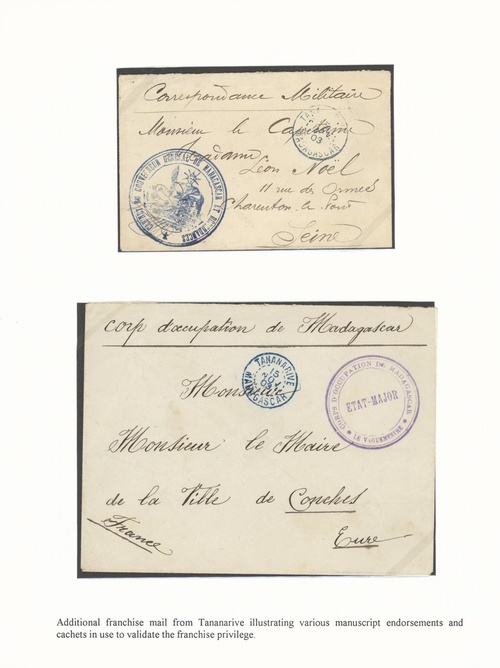 Correspondance Militaire
Monsieur le Capitaine
Madame
Léon Noël
11 rue des Ormes
Charenton le Pont
Seine
MADAGASCAR
03
CABINET DU GOUVERNEUR GENERAL DE MADAGASCAR ET DEPENDANCES
Corp d'occupation de Madagascar
TANANARIVE
MADAGASCAR
CORPS D'OCCUPATION DE MADAGASCAR
ETAT-MAJOR
LE VAGUEMESTRE
Monsieur
Monsieur le Maire
de la Ville de Conches
France
Eure
Additional franchise mail from Tananarive illustrating various manuscript endorsements and
cachets in use to validate the franchise privilege.